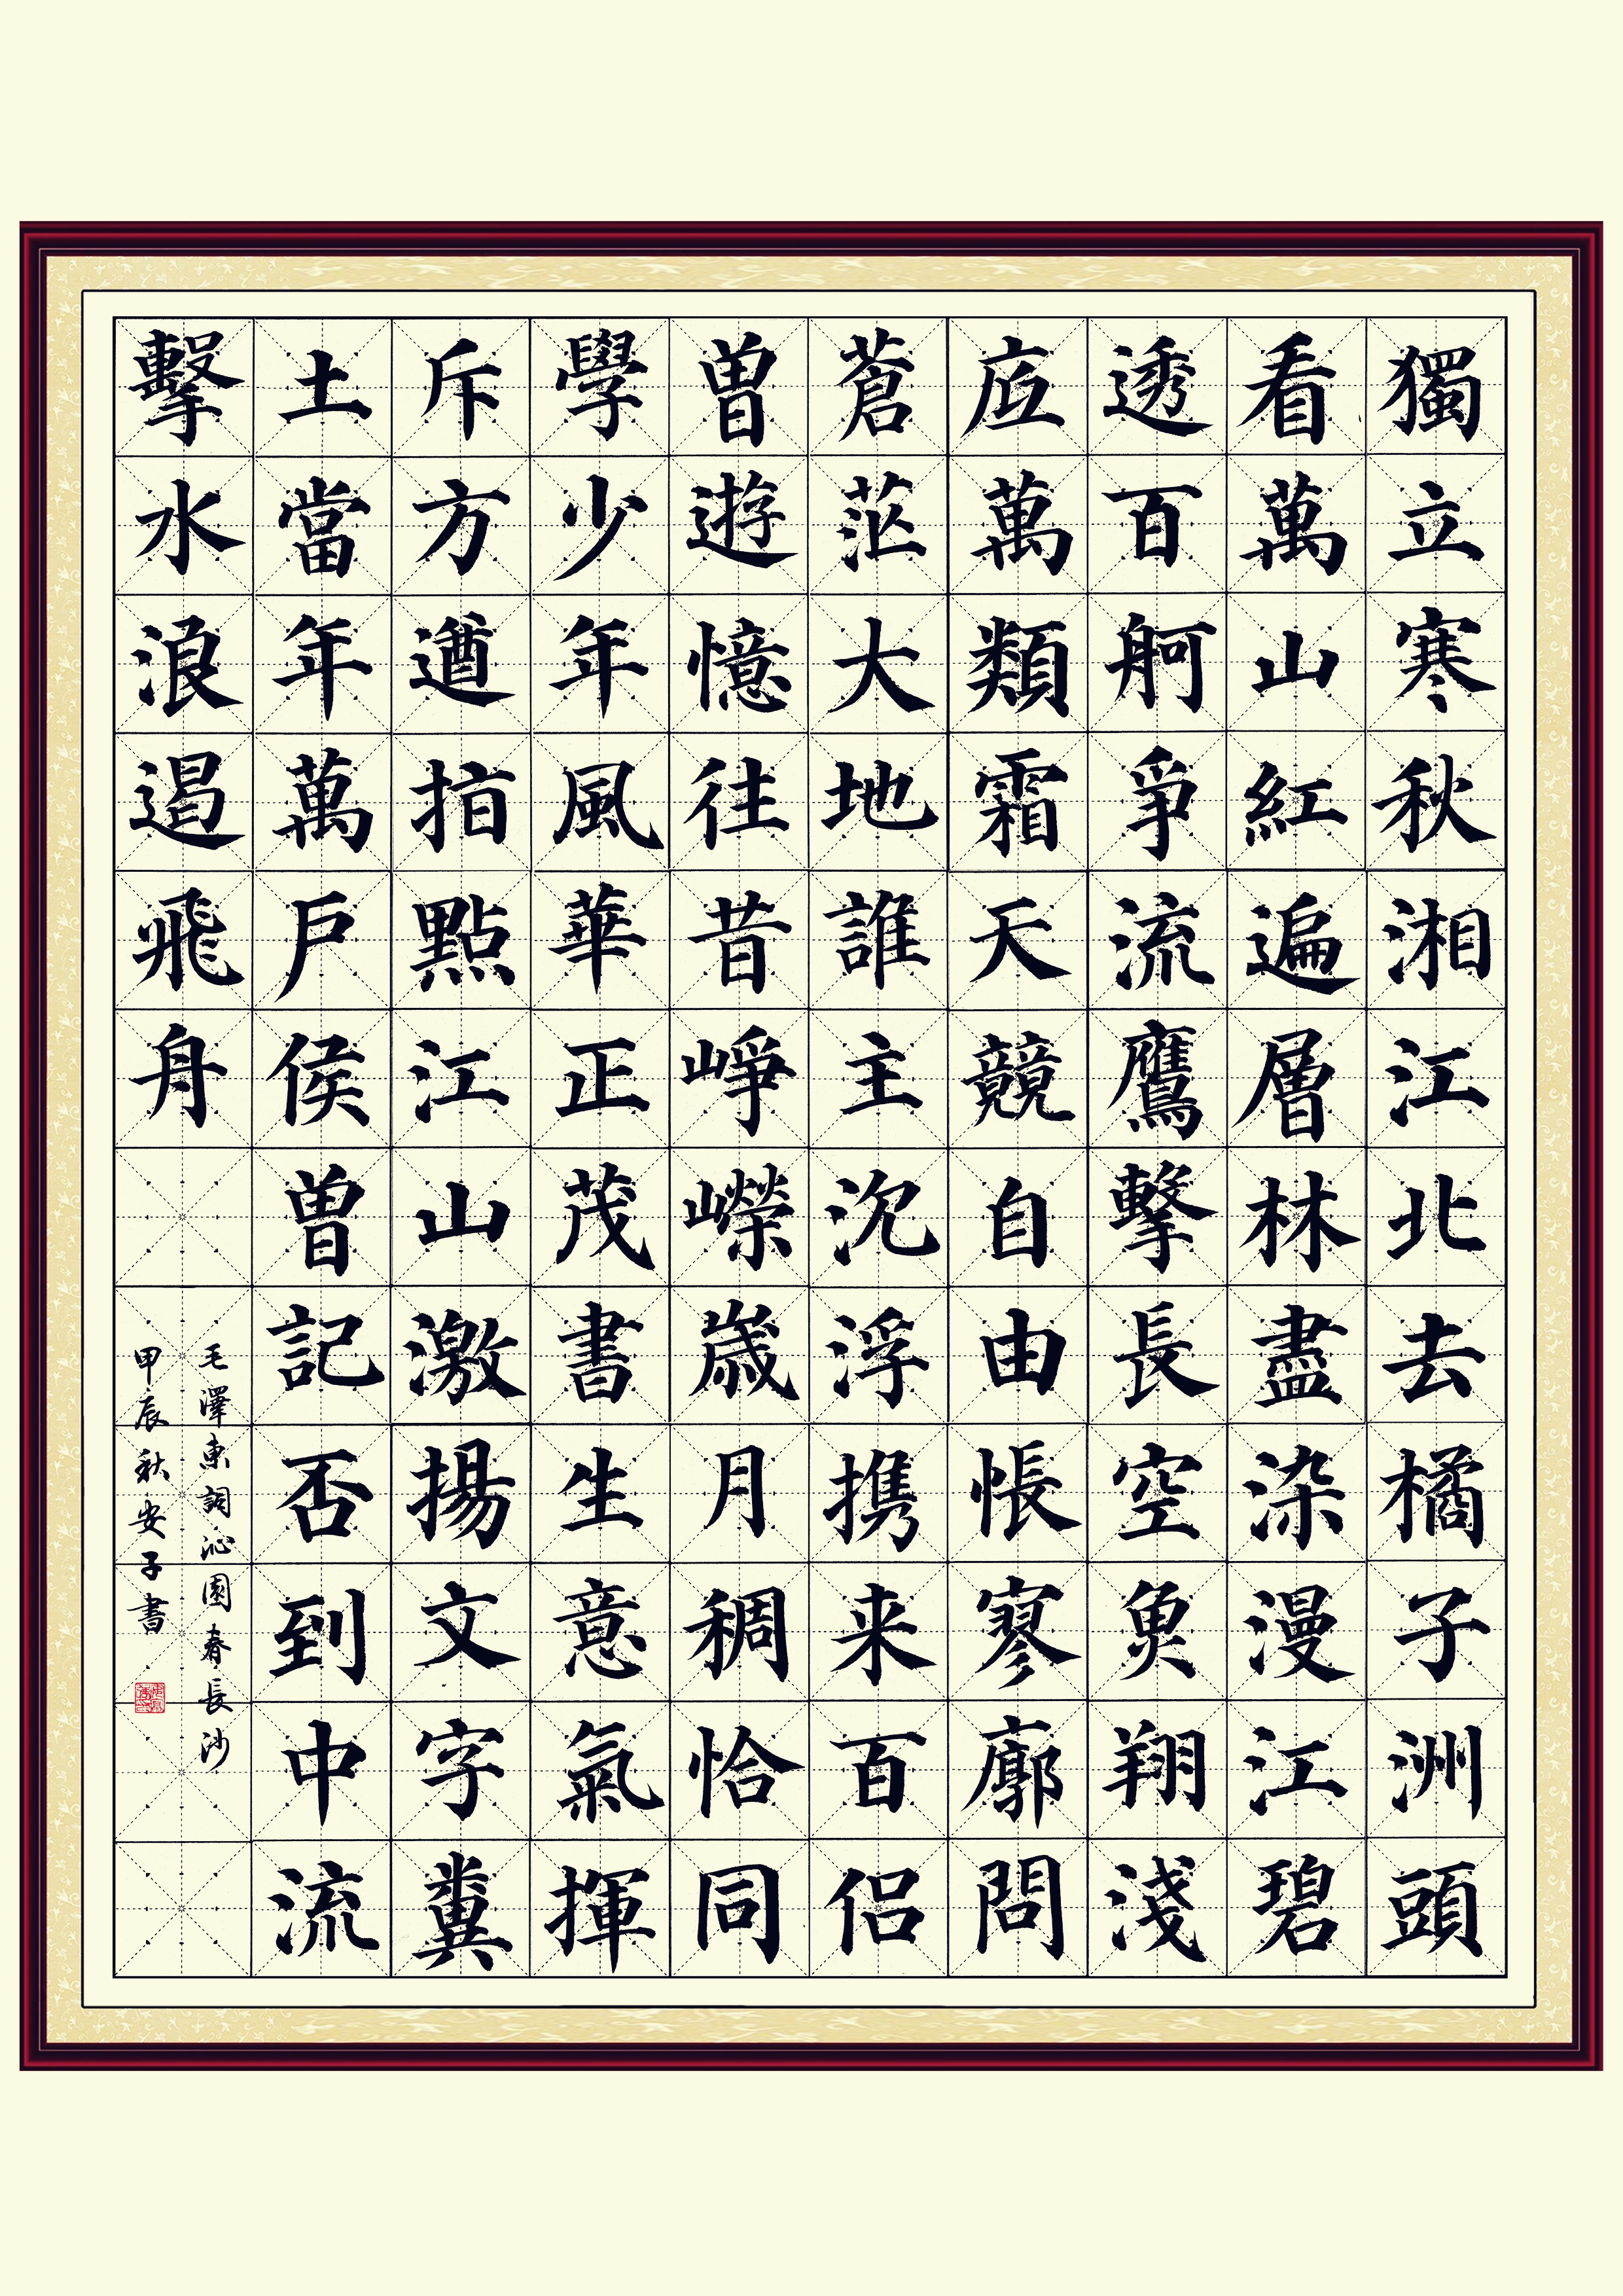 獨立寒秋湘江北去橘子洲頭
看萬山紅遍層林盡染漫江碧
透百舸爭流鷹擊長空魚翔淺
底萬類霜天競自由悵寥廓問
蒼茫大地誰主沉浮携来百侣
曾遊憶往昔崢嶸歲月稠恰同
學少年風華正茂書生意氣揮
斥方遒指點江山激揚文字糞
土當年萬户侯曾記否到中流
擊水浪遏飛舟
毛澤東詞沁園春長沙
甲辰秋安子書